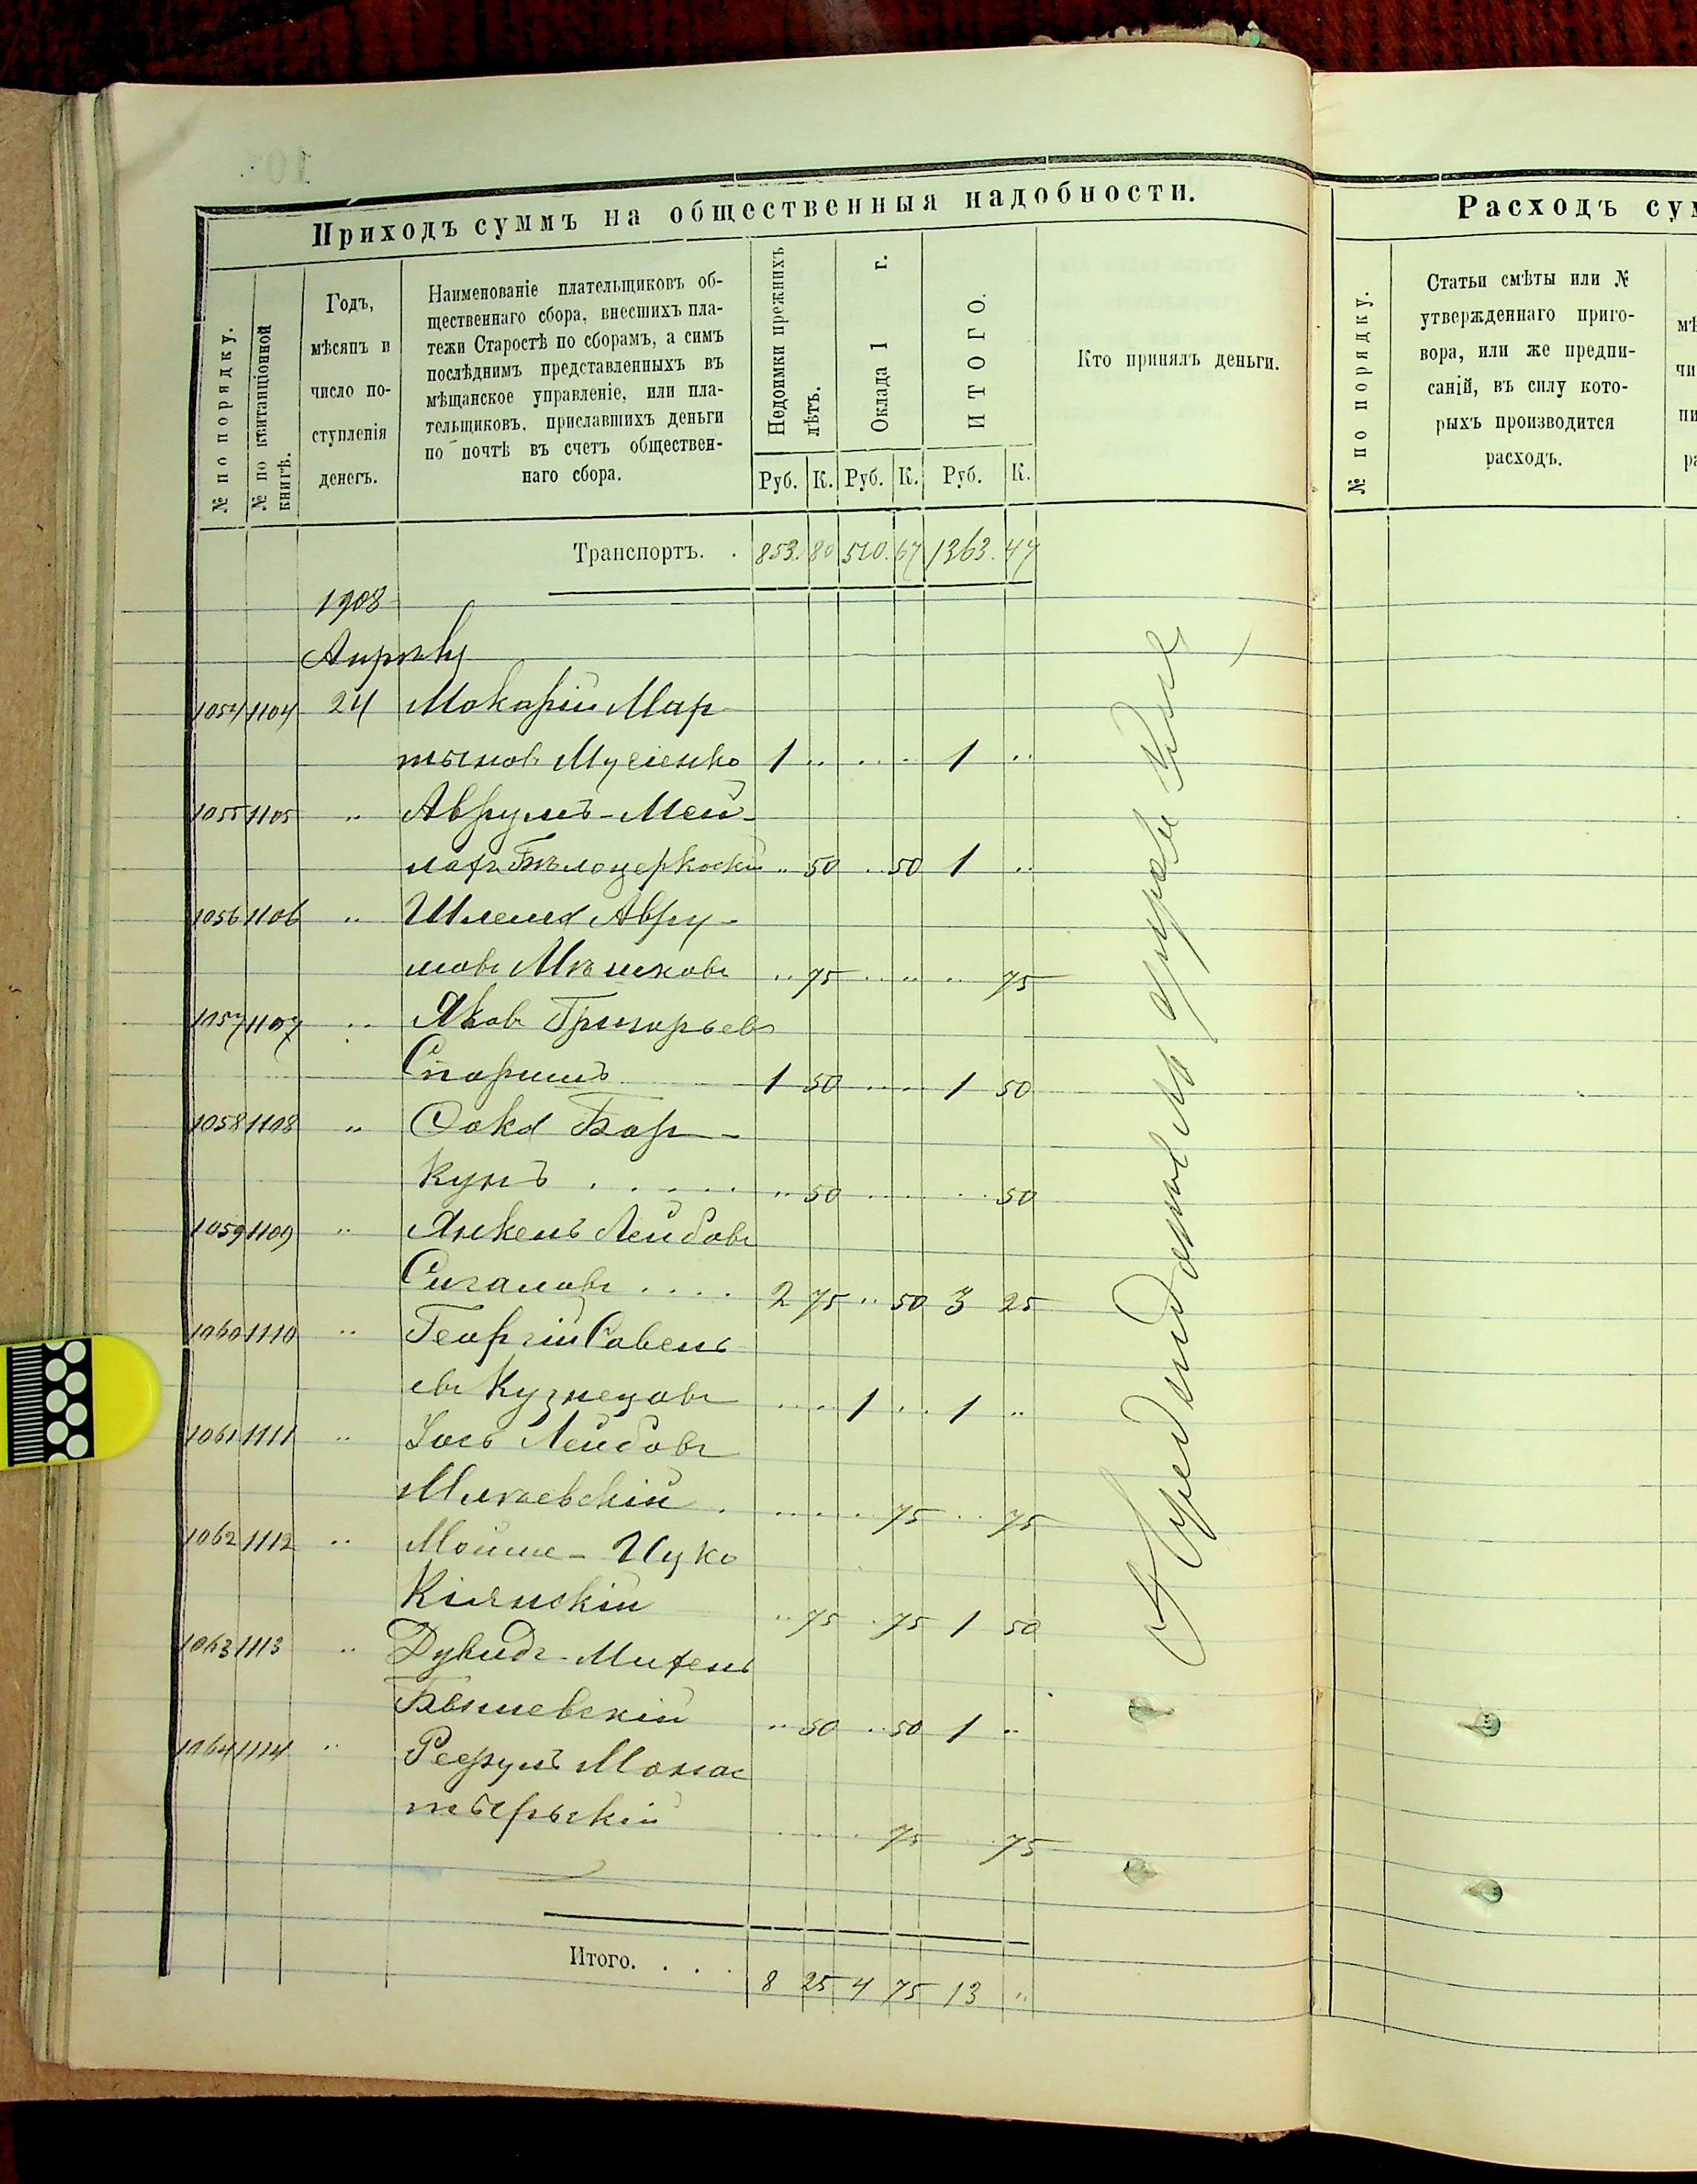 Приходъ суммъ на общественныя надобности.
№ по порядку.
№ по квитанціонной
книгѣ.
Годъ,
мѣсяцъ и
число по-
ступленія
денегъ.
Наименованіе плательщиковъ об-
щественнаго сбора, внесшихъ пла-
тежи Старостѣ по сборамъ, а симъ
послѣднимъ представленныхъ въ
мѣщанское управленіе, или пла-
тельщиковъ, приславшихъ деньги
по почтѣ въ счетъ обществен-
наго сбора.
Недоимки прежнихъ
лѣтъ.
Оклада 1 г.
ИТОГО.
Руб. К. Руб. К. Руб. К.
Кто принялъ деньги.
Транспортъ. . 853. 80 510. 67 1363. 47
1908
Апрѣль
1054 1104 24 Макарій Мар
тынов Мусіенко 1 .. .. .. 1 ..
1055 1105 .. Аврумъ-Мей-
лахъ Бѣлоцерковскій .. 50 .. 50 1 ..
1056 1106 .. Шлема Авру-
мовъ Мѣшковъ .. 75 .. .. .. 75
1057 1107 .. Яковъ Григорьевъ
1 50 .. .. 1 50
1058 1108 .. Бор-
кунъ . . . . . .. 50 .. .. .. 50
1059 1109 .. Янкель Лейбовъ
Сигаловъ . . . . 2 75 .. 50 3 25
1060 1110 .. Георгій Савель
евъ Кузнецовъ .. .. 1 .. 1 ..
1061 1111 .. Іось Лейбовъ
.. .. .. 75 .. 75
1062 1112 .. Мошко-Ицко
Кіянскій .. 75 .. 75 1 50
1063 1113 .. Дувидъ-Михель
Бышевскій .. 50 .. 50 1 ..
1064 1114 .. Монас
тырьскій .. .. .. 75 .. 75
Итого. . . . 8 25 4 75 13 ..
Расходъ сум
№ по порядку.
Статьи смѣты или №
утвержденнаго приго-
вора, или же предпи-
саній, въ силу кото-
рыхъ производится
расходъ.